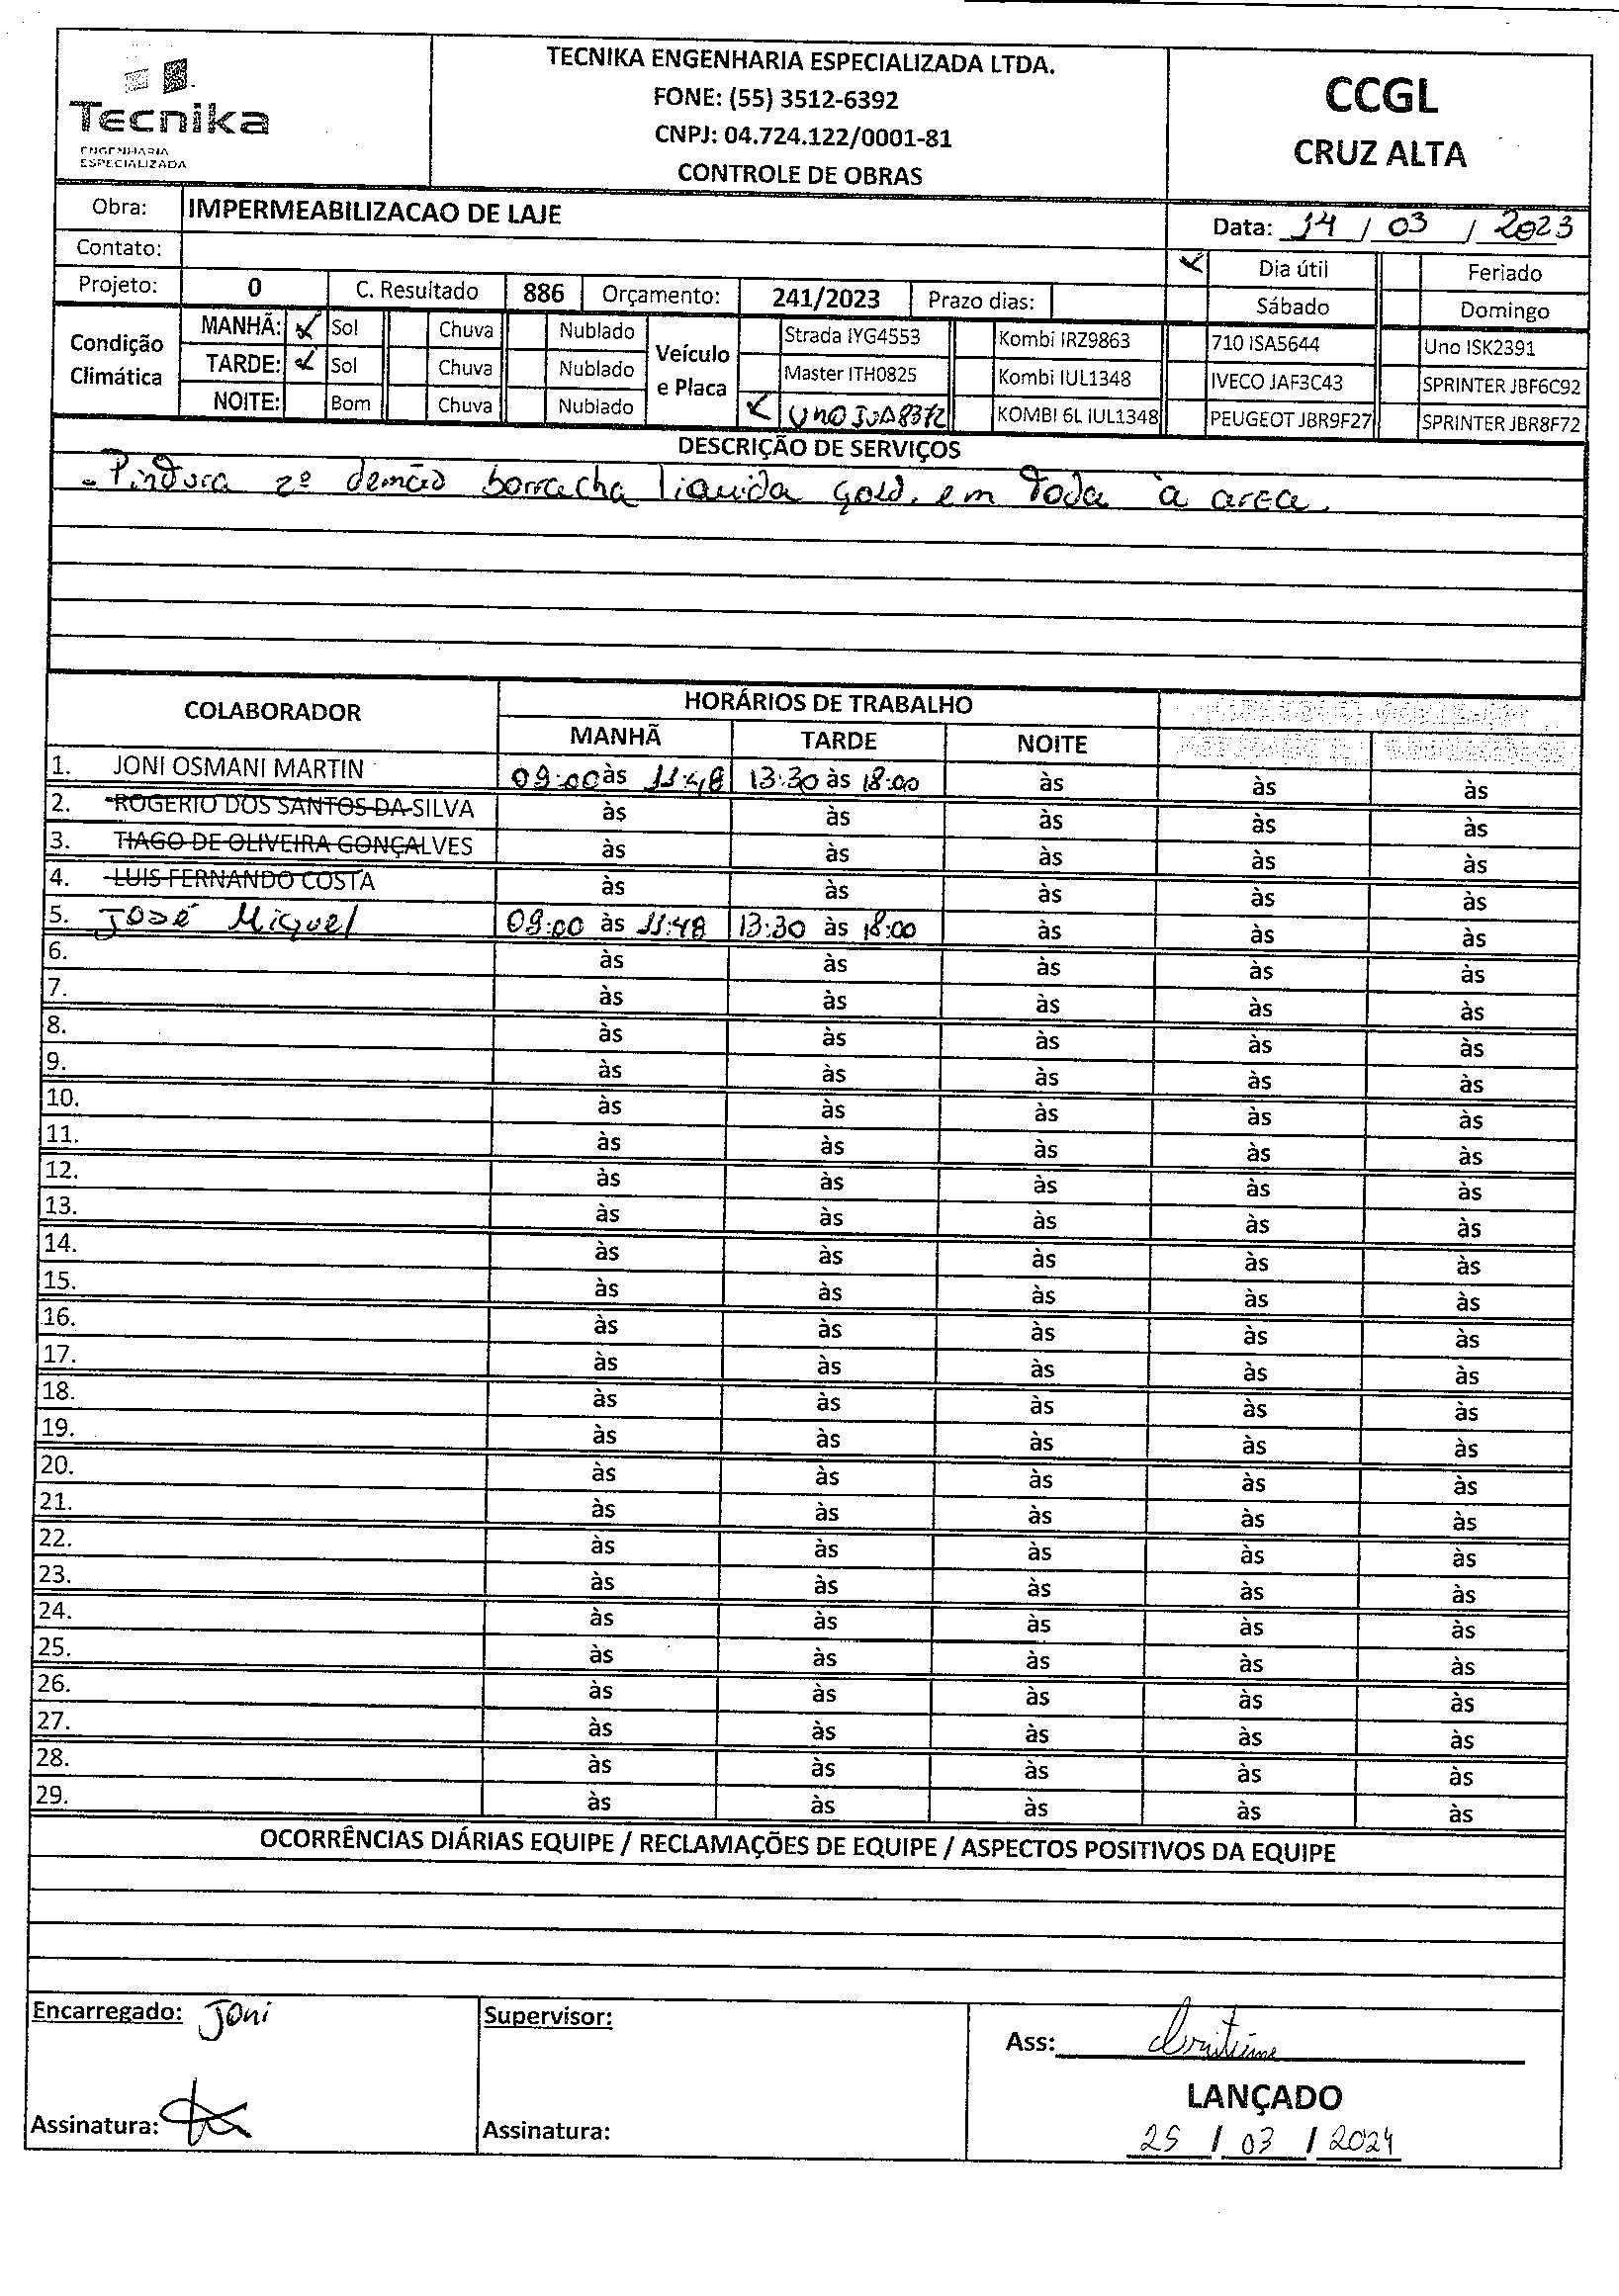 TECNIKA ENGENHARIA ESPECIALIZADA LTDA.
FONE: (55) 3512-6392
CNPJ: 04.724.122/0001-81
CONTROLE DE OBRAS
Tecnika
ENGENHARIA
ESPECIALIZADA
CCGL
CRUZ ALTA
Obra: IMPERMEABILIZACAO DE LAJE
Data: 14 / 03 / 2023
Contato:
Dia útil Feriado
Projeto: 0 C. Resultado 886 Orçamento: 241/2023 Prazo dias:
Sábado Domingo
Condição Climática
MANHÃ: Sol Chuva Nublado
TARDE: Sol Chuva Nublado
NOITE: Bom Chuva Nublado
Veículo e Placa
Strada IYG4553 Kombi IRZ9863 710 ISA5644 Uno ISK2391
Master ITH0825 Kombi IUL1348 IVECO JAF3C43 SPRINTER JBF6C92
UNO KOMBI 6L IUL1348 PEUGEOT JBR9F27 SPRINTER JBR8F72
DESCRIÇÃO DE SERVIÇOS
- Pintura 2º demão borracha liquida gold, em toda à area.
COLABORADOR HORÁRIOS DE TRABALHO
MANHÃ TARDE NOITE
1. JONI OSMANI MARTIN 09:00 às 11:48 13:30 às 18:00 às às às
2. ROGERIO DOS SANTOS DA SILVA às às às às às
3. TIAGO DE OLIVEIRA GONÇALVES às às às às às
4. LUIS FERNANDO COSTA às às às às às
5. José Miguel 09:00 às 11:48 13:30 às 18:00 às às às
6. às às às às às
7. às às às às às
8. às às às às às
9. às às às às às
10. às às às às às
11. às às às às às
12. às às às às às
13. às às às às às
14. às às às às às
15. às às às às às
16. às às às às às
17. às às às às às
18. às às às às às
19. às às às às às
20. às às às às às
21. às às às às às
22. às às às às às
23. às às às às às
24. às às às às às
25. às às às às às
26. às às às às às
27. às às às às às
28. às às às às às
29. às às às às às
OCORRÊNCIAS DIÁRIAS EQUIPE / RECLAMAÇÕES DE EQUIPE / ASPECTOS POSITIVOS DA EQUIPE
Encarregado: Joni
Supervisor:
Ass:
LANÇADO
Assinatura:
Assinatura:
25 / 03 / 2024